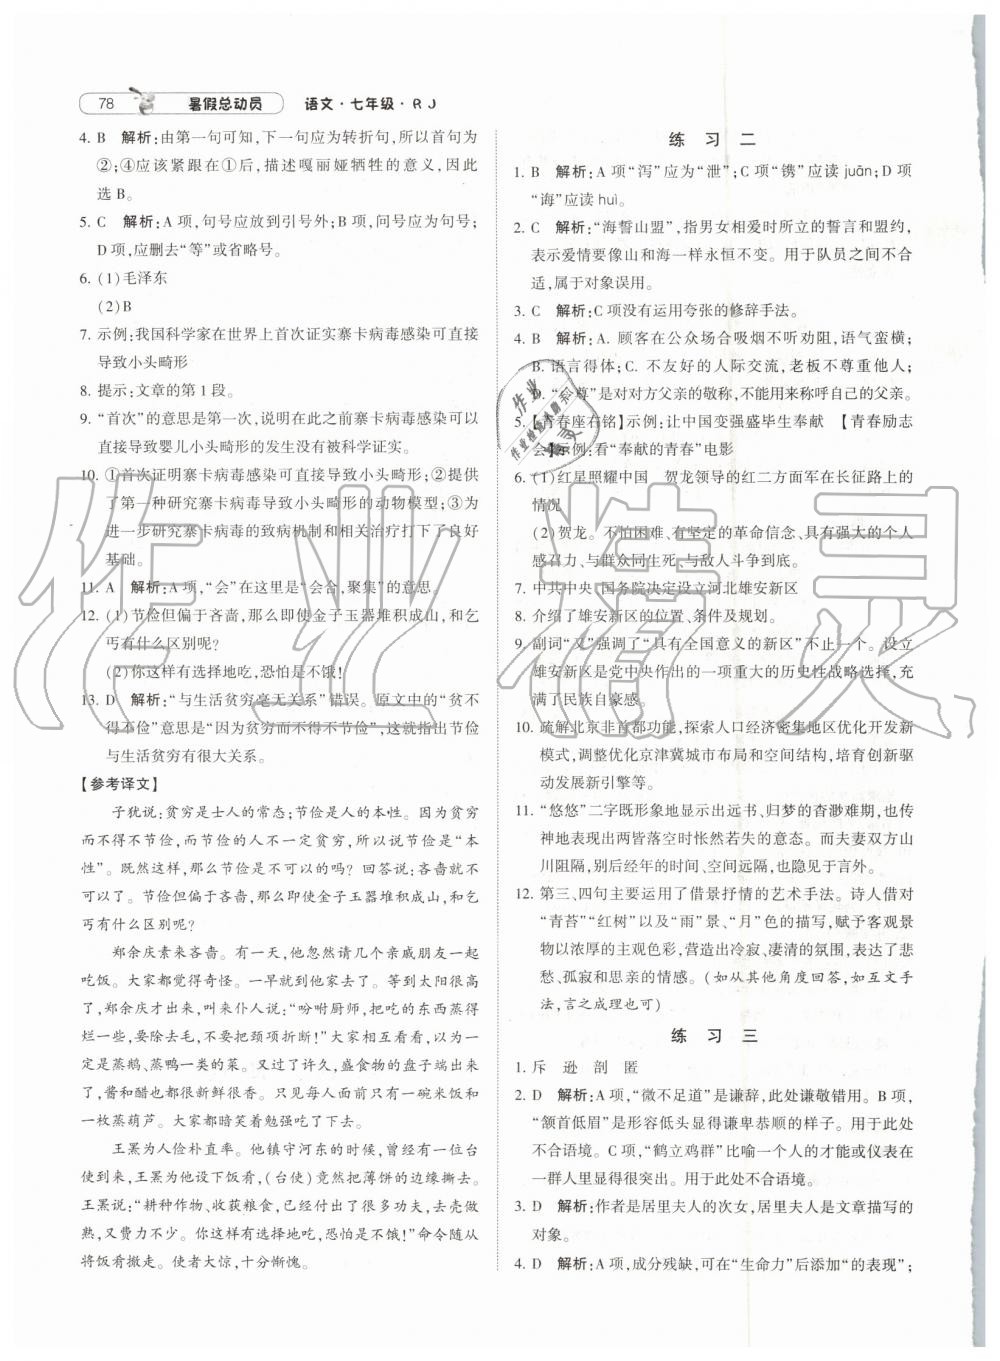 78 暑假总动员 语文·七年级·RJ
4. B 解析:由第一句可知,下一句应为转折句,所以首句为
②;④应该紧跟在①后,描述嘎丽娅牺牲的意义,因此
选B。
5. C 解析:A项,句号应放到引号外;B项,问号应为句号;
D项,应删去“等”或省略号。
6. (1)毛泽东
(2)B
7. 示例:我国科学家在世界上首次证实寨卡病毒感染可直接
导致小头畸形
8. 提示:文章的第1段。
9. “首次”的意思是第一次,说明在此之前寨卡病毒感染可以
直接导致婴儿小头畸形的发生没有被科学证实。
10. ①首次证明寨卡病毒感染可直接导致小头畸形;②提供
了第一种研究寨卡病毒导致小头畸形的动物模型;③为
进一步研究寨卡病毒的致病机制和相关治疗打下了良好
基础。
11. A 解析:A项,“会”在这里是“会合,聚集”的意思。
12. (1)节俭但偏于吝啬,那么即使金子玉器堆积成山,和乞
丐有什么区别呢?
(2)你这样有选择地吃,恐怕是不饿!
13. D 解析:“与生活贫穷毫无关系”错误。原文中的“贫不
得不俭”意思是“因为贫穷而不得不节俭”,这说明节俭
与生活贫穷有很大关系。
【参考译文】
子犹说:贫穷是士人的常态;节俭是人的本性。因为贫穷
而不得不节俭,而节俭的人不一定贫穷,所以说节俭是“本
性”。既然这样,那么节俭是不可以的吗?回答说:吝啬才不
可以了。节俭但偏于吝啬,那么即使金子玉器堆积成山,和乞
丐有什么区别呢?
郑余庆素来吝啬。有一天,他忽然请几个亲戚朋友一起
吃饭。大家都觉得奇怪。一早就都去了。等到太阳很高
了,郑余庆才出来,叫来仆人说:“吩咐厨师,把吃的东西蒸得
烂一些,要除去毛,不要把颈项折断!”大家互相看看,以为一
定是蒸鹅、蒸鸭一类的菜。又过了许久,盛食物的盘子端出来
了,酱和醋也都很新鲜很香。只见每人面前只有一碗米饭和
一枚蒸葫芦。大家都暗笑着勉强吃了下去。
王罴为人俭朴直率。他镇守河东的时候,曾经有一位台
使到来,王罴为他设下饭肴,(台使)竟然将薄饼的边缘撕去。
王罴说:“耕种作物、收获粮食,已经付出了很多功夫,舂壳做
熟,又费力不少。你这样有选择地吃,恐怕是不饿!”命令随从
将饭肴撤走。使者大惊,十分惭愧。
练习二
1. B 解析:A项“泻”应为“泄”;C项“镌”应读juān;D项
“诲”应读huì。
2. C 解析:“海誓山盟”,指男女相爱时所立的誓言和盟约,
表示爱情要像山和海一样永恒不变。用于队员之间不合
适,属于对象误用。
3. C 解析:C项没有运用夸张的修辞手法。
4. B 解析:A. 顾客在公众场合吸烟不听劝阻,语气蛮横;
B. 语言得体;C. 不友好的人际交流,老板不尊重他人;
D. “令尊”是对对方父亲的敬称,不能用来称呼自己的父亲。
5. 【青春座右铭】示例:让中国变强盛毕生奉献 【青春励志
会】示例:看“奉献的青春”电影
6. (1)红星照耀中国 贺龙领导的红二方面军在长征路上的
情况
(2)贺龙。不怕困难、有坚定的革命信念、具有强大的个人
感召力、与群众同生死、与敌人斗争到底。
7. 中共中央、国务院决定设立河北雄安新区
8. 介绍了雄安新区的位置、条件及规划。
9. 副词“又”强调了“具有全国意义的新区”不止一个。设立
雄安新区是党中央作出的一项重大的历史性战略选择,充
满了民族自豪感。
10. 疏解北京非首都功能,探索人口经济密集地区优化开发新
模式,调整优化京津冀城市布局和空间结构,培育创新驱
动发展新引擎等。
11. “悠悠”二字既形象地显示出远书、归梦的杳渺难期,也传
神地表现出两皆落空时怅然若失的意态。而夫妻双方山
川阻隔,别后经年的时间、空间远隔,也隐见于言外。
12. 第三、四句主要运用了借景抒情的艺术手法。诗人借对
“青苔”“红树”以及“雨”景、“月”色的描写,赋予客观景
物以浓厚的主观色彩,营造出冷寂、凄清的氛围,表达了悲
愁、孤寂和思亲的情感。(如从其他角度回答,如互文手
法,言之成理也可)
练习三
1. 斥 逊 剖 匿
2. D 解析:A项,“微不足道”是谦辞,此处谦敬错用。B项,
“颔首低眉”是形容低头显得谦卑恭顺的样子。用于此处
不合语境。C项,“鹤立鸡群”比喻一个人的才能或仪表在
一群人里显得很突出。用于此处不合语境。
3. D 解析:作者是居里夫人的次女,居里夫人是文章描写的
对象。
4. D 解析:A项,成分残缺,可在“生命力”后添加“的表现”;
作业精灵